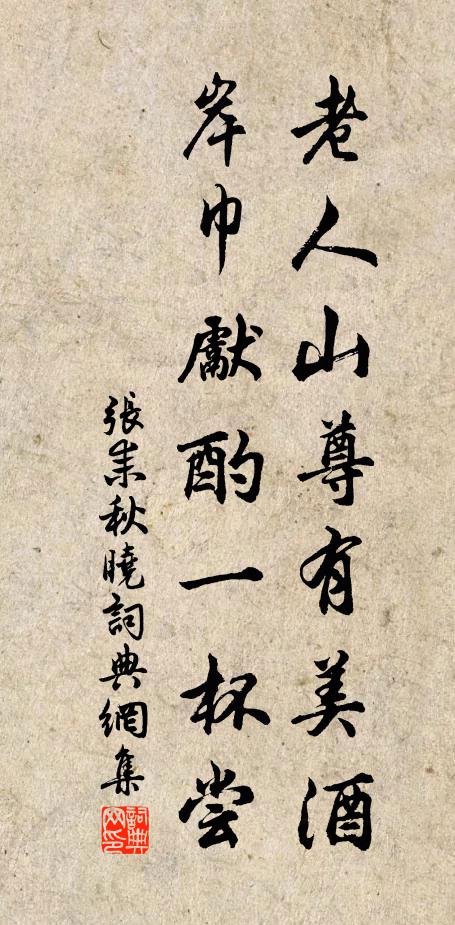 老人山尊有美酒
岸巾獻酌一杯尝
張耒秋曉詞典網集
詞典网印